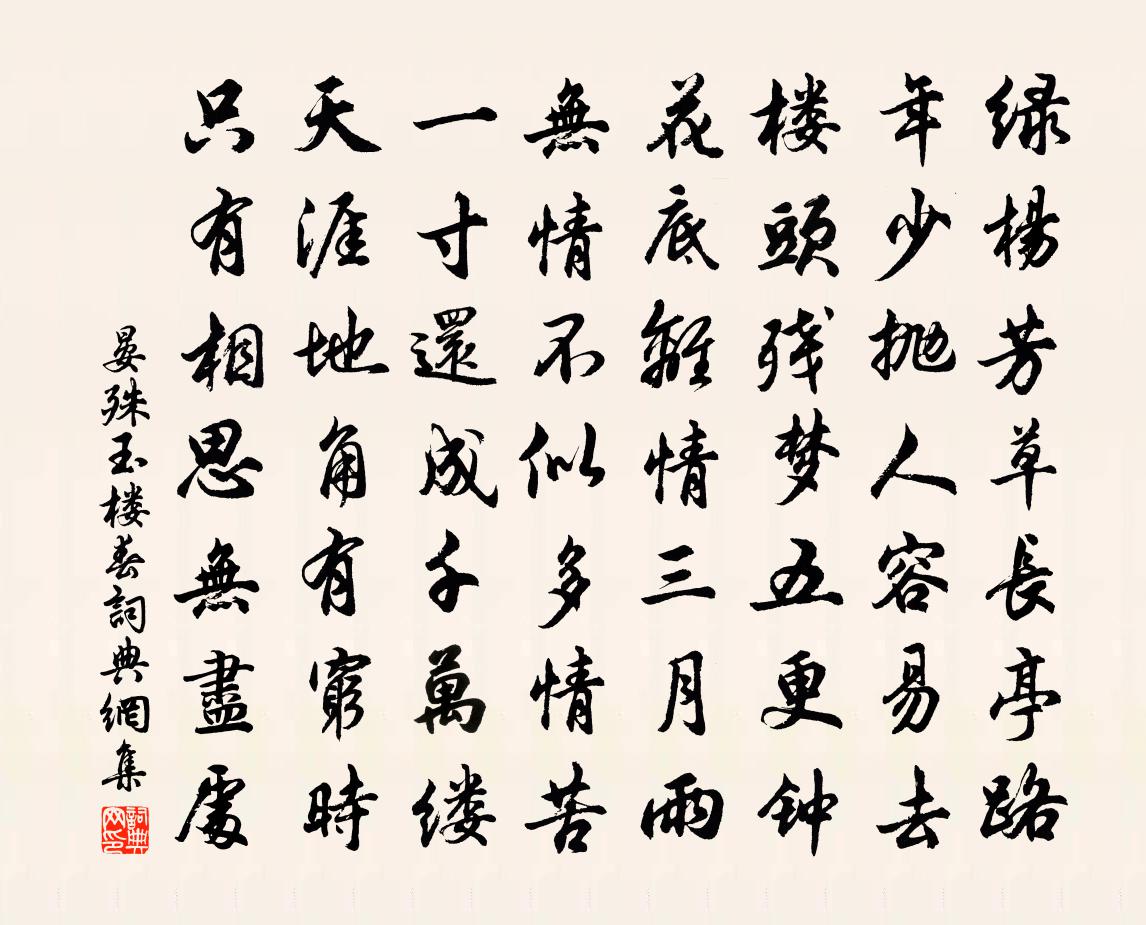 绿楊芳草長亭路
年少抛人容易去
楼頭残梦五更钟
花底離情三月雨
無情不似多情苦
一寸還成千萬缕
天涯地角有窮時
只有相思無盡處
晏殊玉楼春詞典網集
詞典网印